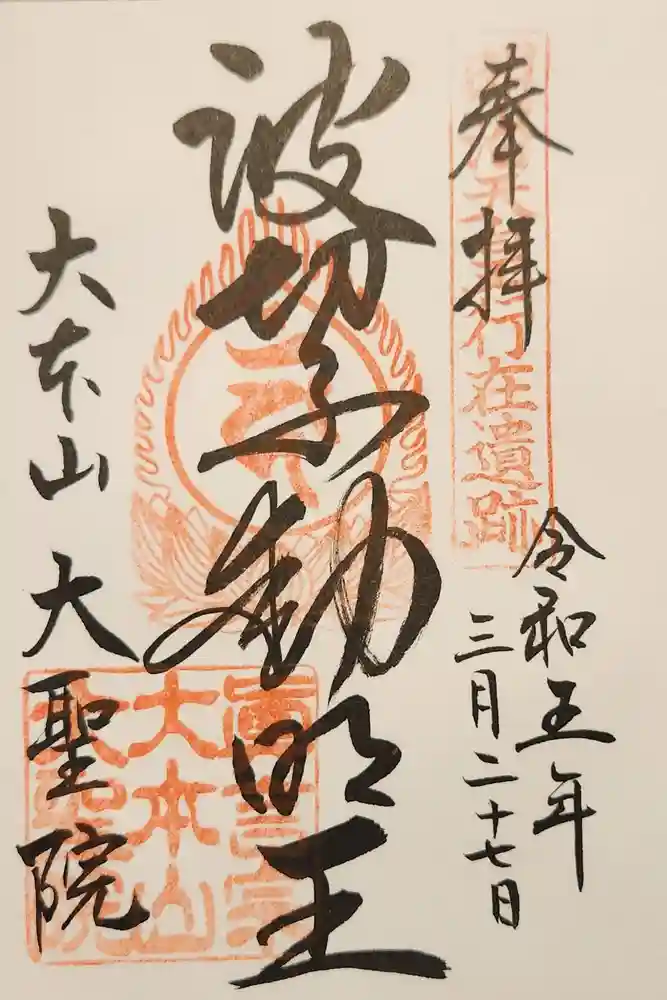 奉拝
行在遺跡
令和五年
三月二十七日
波切不動明王
大本山 大聖院
真言宗
大本山
大聖院